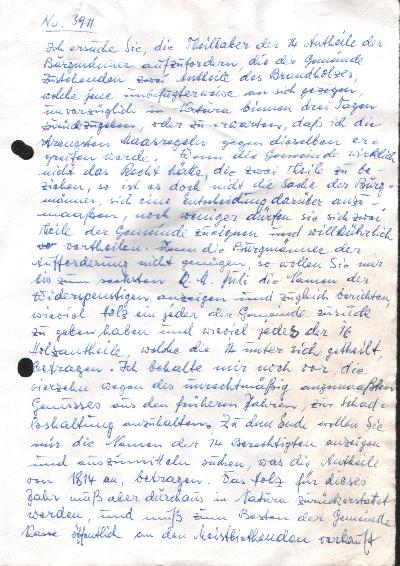 No. 3911
Ich ersuche Sie, die Theilhaber der 14 Antheile der
Bürgmänner aufzufordern, die der Gemeinde
zustehenden zwei Antheile des Brandholzes,
welche jene unbefugterweise an sich gezogen,
unverzüglich in Natura binnen drei Tagen
zurückzugeben, oder zu erwarten, daß ich die
strengsten Maasregeln gegen dieselben er-
greifen werde. Wenn die Gemeinde wirklich
nicht das Recht hätte, die zwei Theile zu be-
ziehen, so ist es doch nicht die Sache der Bürg-
männer, sich eine Entscheidung darüber anzu-
maaßen, noch weniger dürfen sie sich zwei
Theile der Gemeinde zueignen und willkührlich
vertheilen. Wenn die Bürgmänner der
Aufforderung nicht genügen, so wollen Sie mir
bis zum nächsten Juli die Namen der
Widerspenstigen anzeigen und zugleich berichten,
wieviel Holz ein jeder der Gemeinde zurück
zu geben haben und wieviel jedes der 16
Holzantheile, welche die 14 unter sich getheilt,
betragen. Ich behalte mir noch vor, die
vierzehn wegen des unrechtmäßig angemaaßten
Genusses aus den früheren Jahren, zur Schad-
loshaltung anzuhalten. Zu dem Ende wollen Sie
mir die Namen der 14 Berechtigten anzeigen
und auszumitteln suchen, was die Antheile
von 1814 an, betragen. Das Holz für dieses
Jahr muß aber durchaus in Natura zurückerstattet
werden, und muß zum Besten der Gemeinde
Kasse öffentlich an den Meistbiethenden verkauft